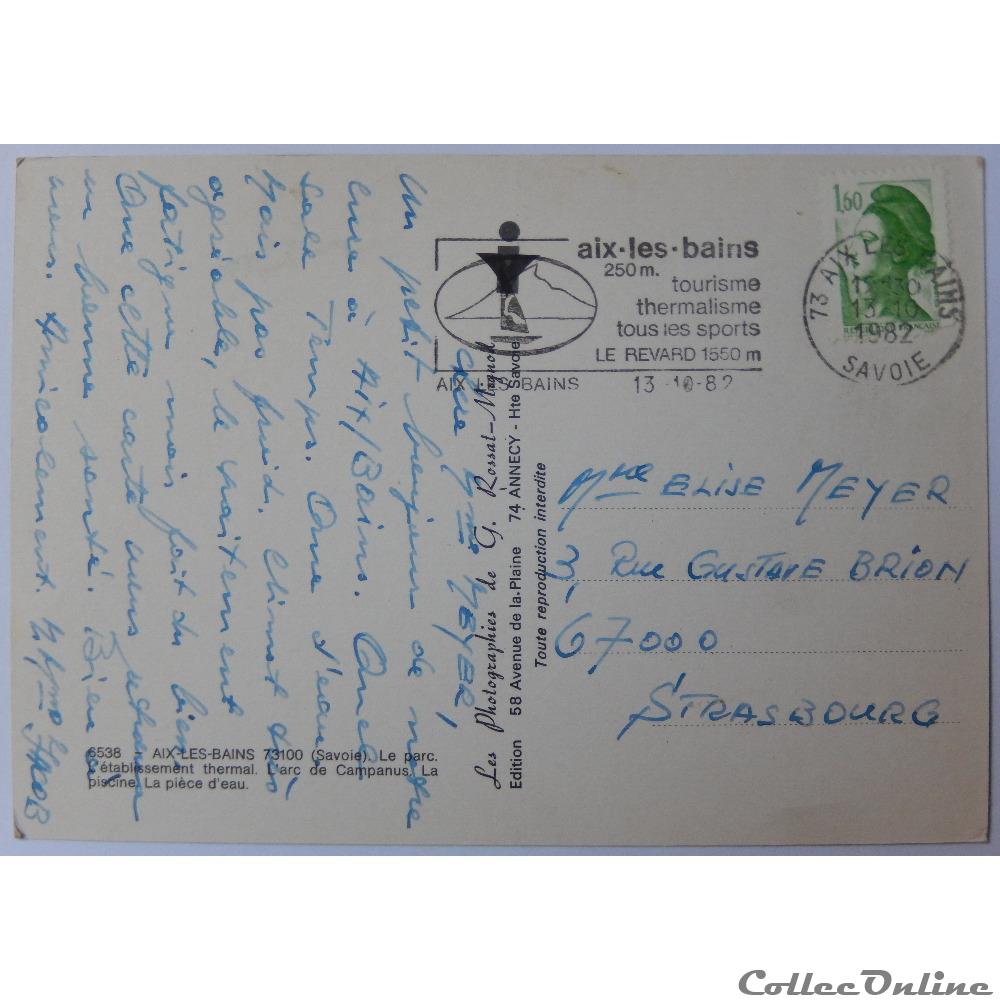 1,60
aix·les·bains
250 m.
tourisme
thermalisme
tous les sports
LE REVARD 1550 m
AIX LES BAINS 13-10-82
73 AIX LES BAINS
13-10
1982
SAVOIE
Chère Mme MEYER,
Un petit bonjour de notre
cure à Aix/Bains. Quel
sale Temps. Que d'eau
Mais pas froid. Climat très
agréable, le traitement
fatigue mais fait du bien
Que cette carte vous trouve
en bonne santé. Bien à
vous. Amicalement.
Les Photographies de G. Rossat-Mignod
Edition 58 Avenue de la-Plaine 74 ANNECY - Hte Savoie
Toute reproduction interdite
Mme ELISE MEYER
3 Rue GUSTAVE BRION
67000
STRASBOURG
6538 - AIX-LES-BAINS 73100 (Savoie). Le parc.
L'établissement thermal. L'arc de Campanus. La
piscine. La pièce d'eau.
CollecOnline